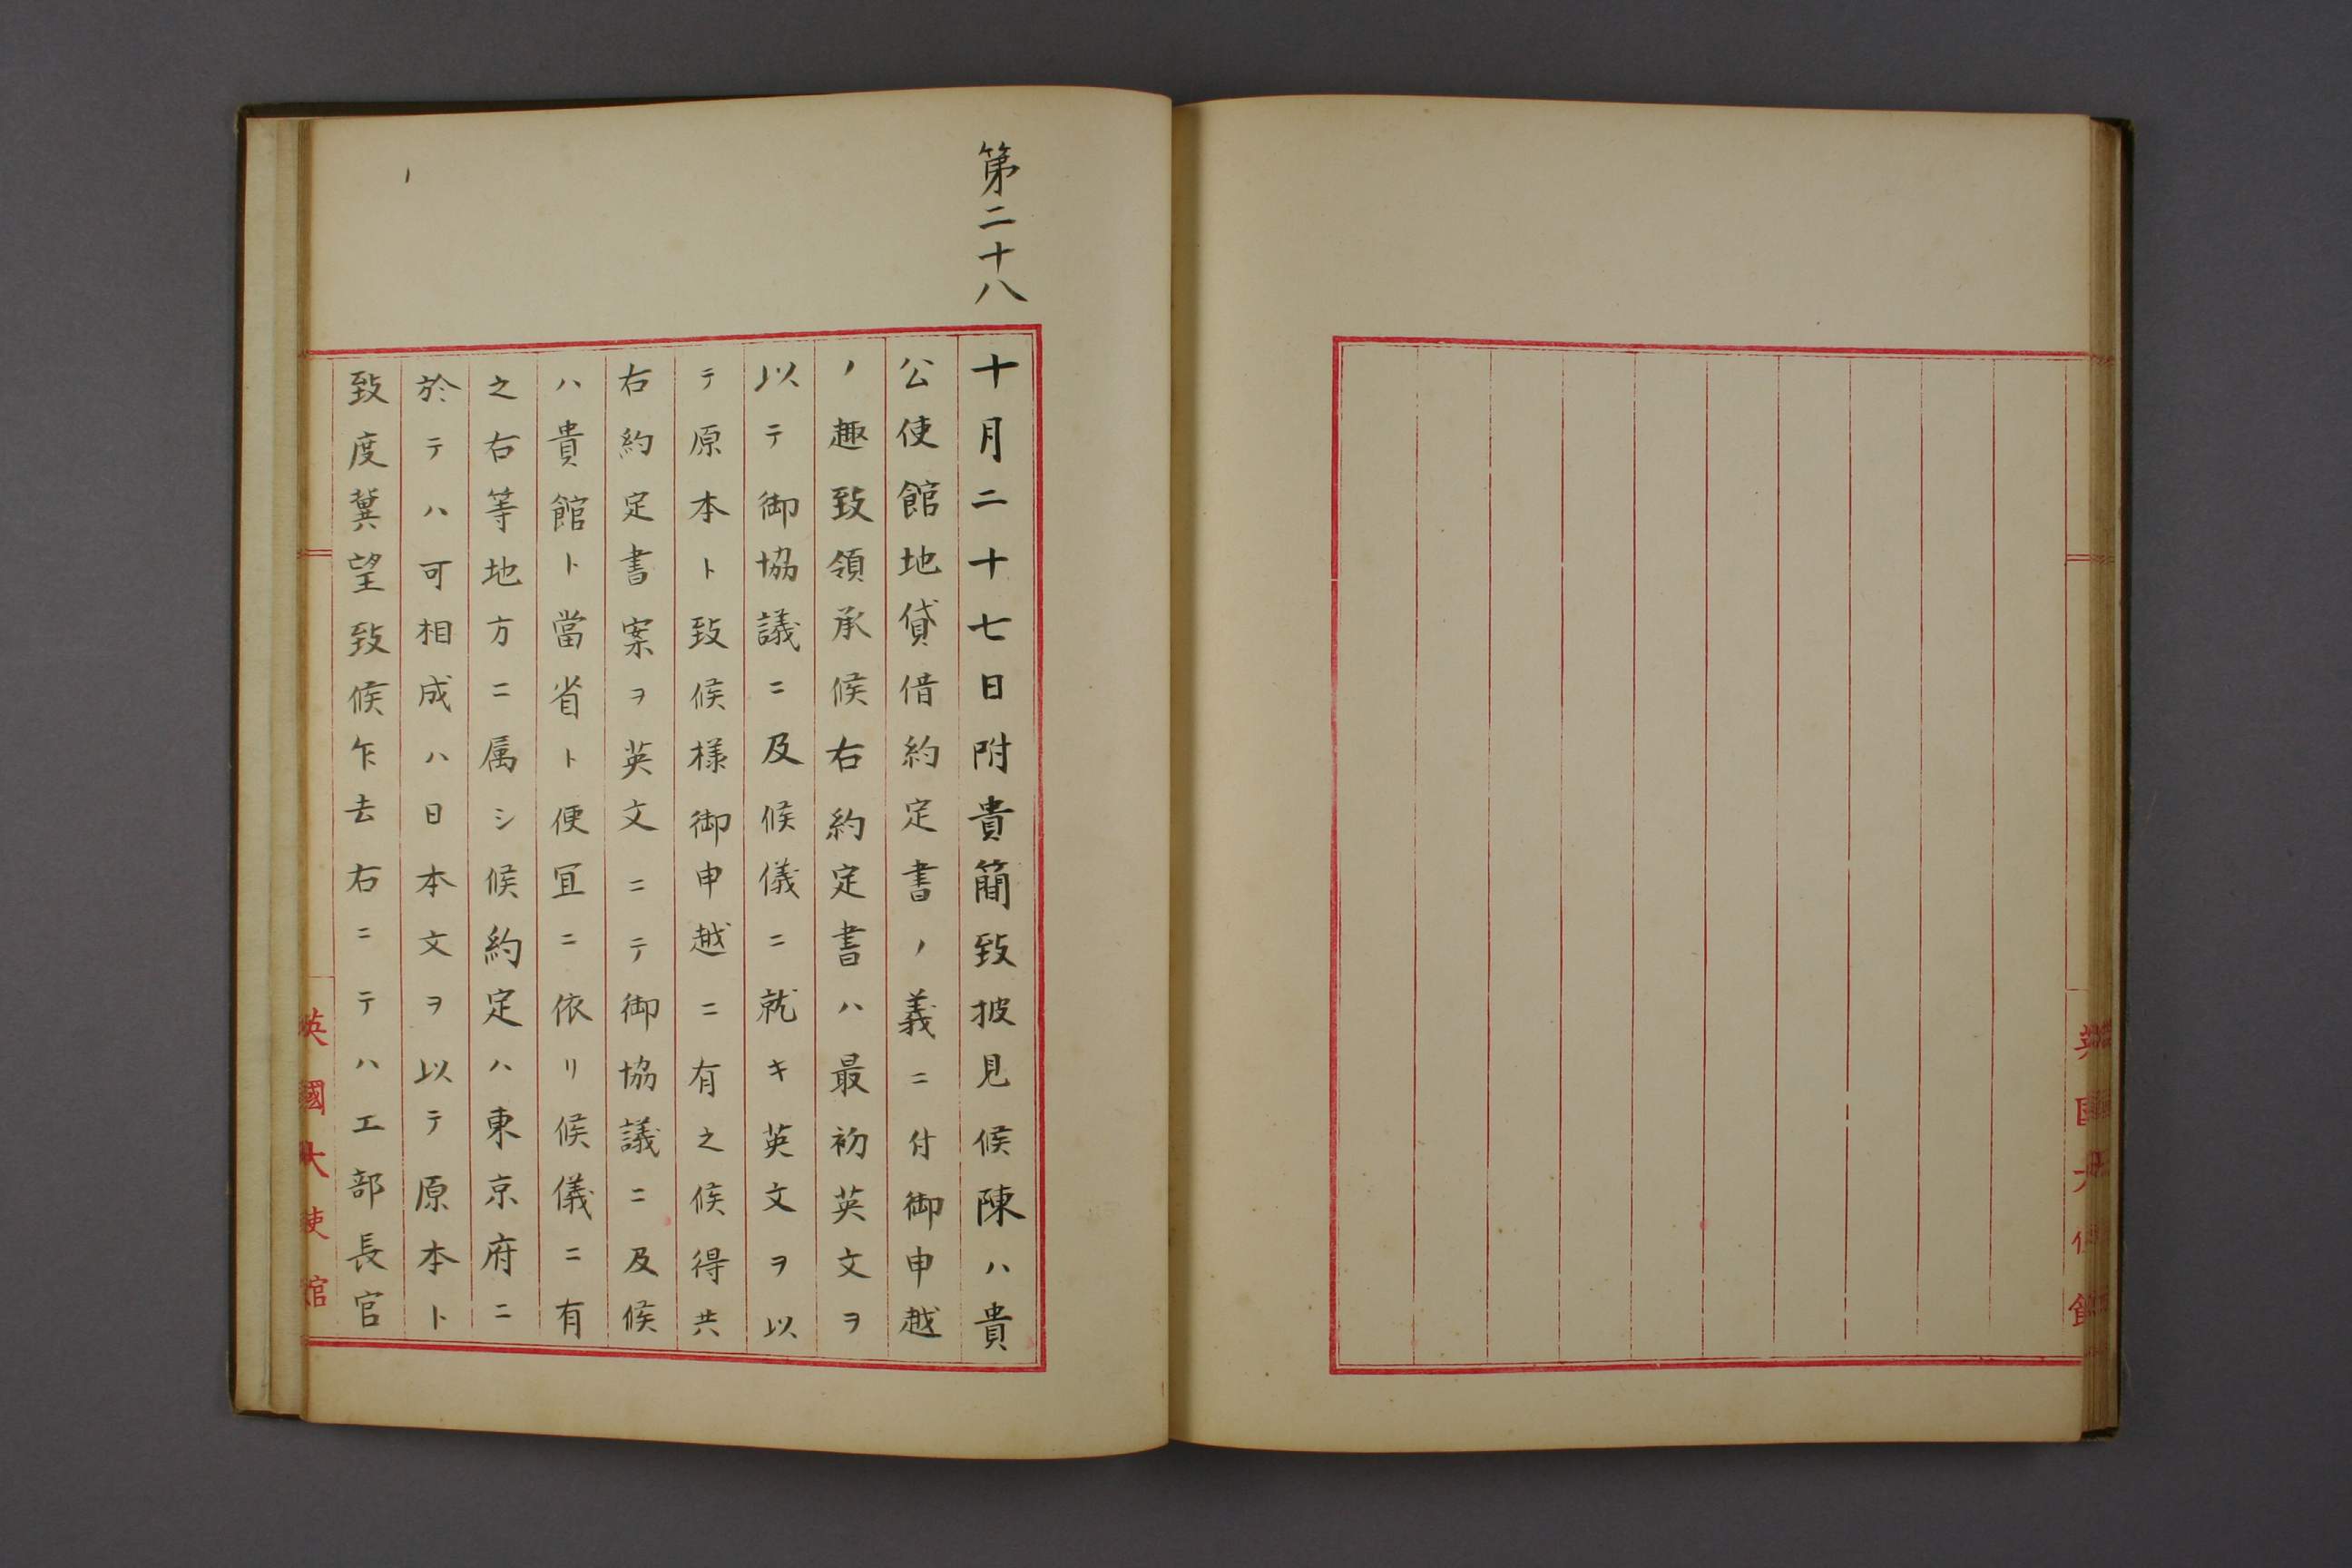 第二十八
十月二十七日附貴簡致披見候陳ハ貴
公使館地貸借約定書ノ義ニ付御申越
ノ趣致領承候右約定書ハ最初英文ヲ
以テ御協議ニ及候儀ニ就キ英文ヲ以
テ原本ト致候樣御申越ニ有之候得共
右約定書案ヲ英文ニテ御協議ニ及候
ハ貴館ト當省ト便宜ニ依リ候儀ニ有
之右等地方ニ属シ候約定ハ東京府ニ
於テハ可相成ハ日本文ヲ以テ原本ト
致度冀望致候乍去右ニテハ工部長官
英國大使館